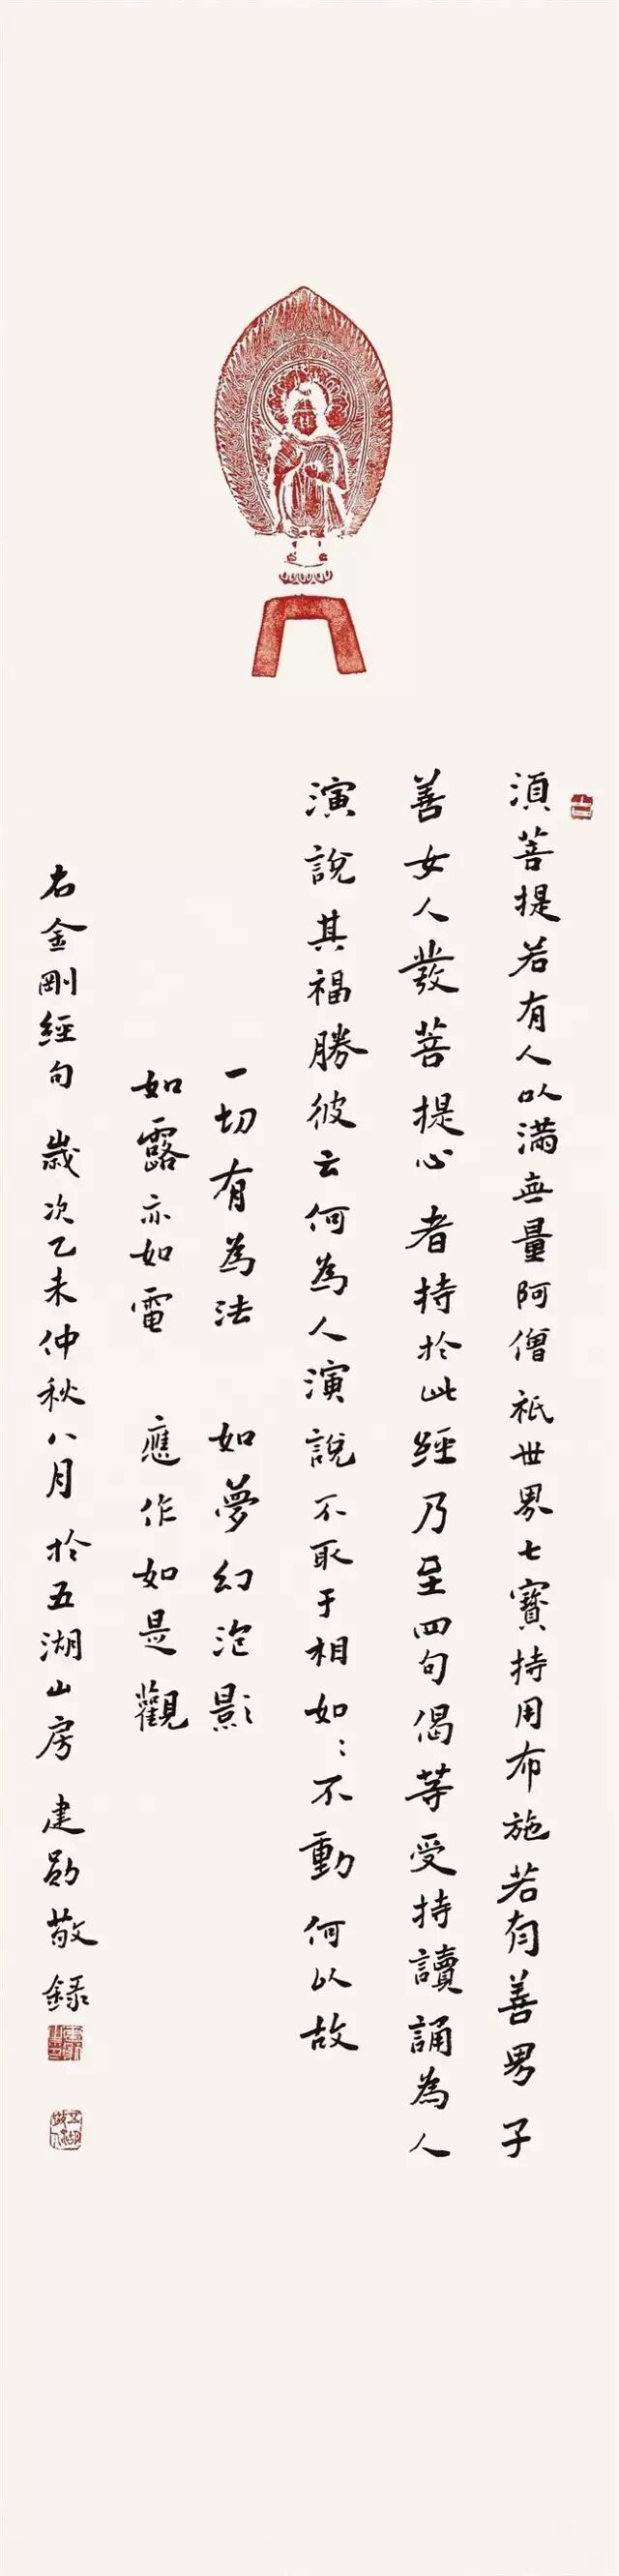 須菩提若有人以滿無量阿僧祇世界七寶持用布施若有善男子
善女人發菩提心者持於此經乃至四句偈等受持讀誦為人
演說其福勝彼云何為人演說不取于相如:不動何以故
一切有為法 如夢幻泡影
如露亦如電 應作如是觀
右金剛經句 歲次乙未仲秋八月於五湖山房 建勛敬錄